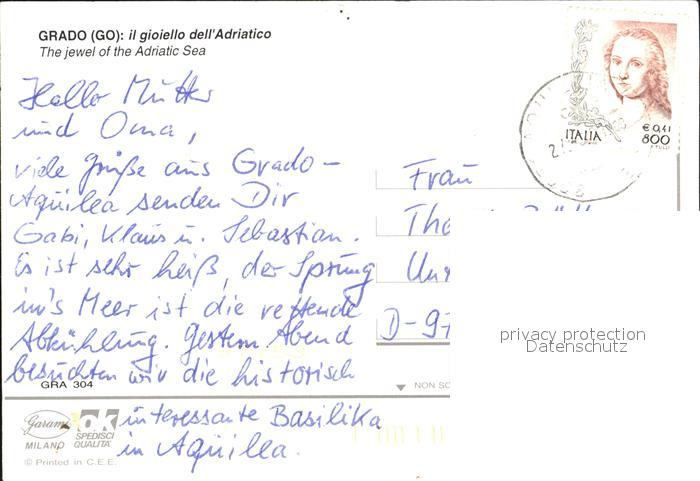 GRADO (GO): il gioiello dell'Adriatico
The jewel of the Adriatic Sea
Hallo Mutter
und Oma,
viele Grüße aus Grado -
Aquilea senden Dir
Gabi, Klaus u. Sebastian.
Es ist sehr heiß, der Sprung
in's Meer ist die rettende
Abkühlung. Gestern Abend
besuchten wir die historisch
interessante Basilika
in Aquilea.
GRA 304
Garami
MILANO
ok
SPEDISCI
QUALITÀ
© Printed in C.E.E.
ITALIA
€ 0,41
800
Frau
D-97
NON SC
privacy protection
Datenschutz